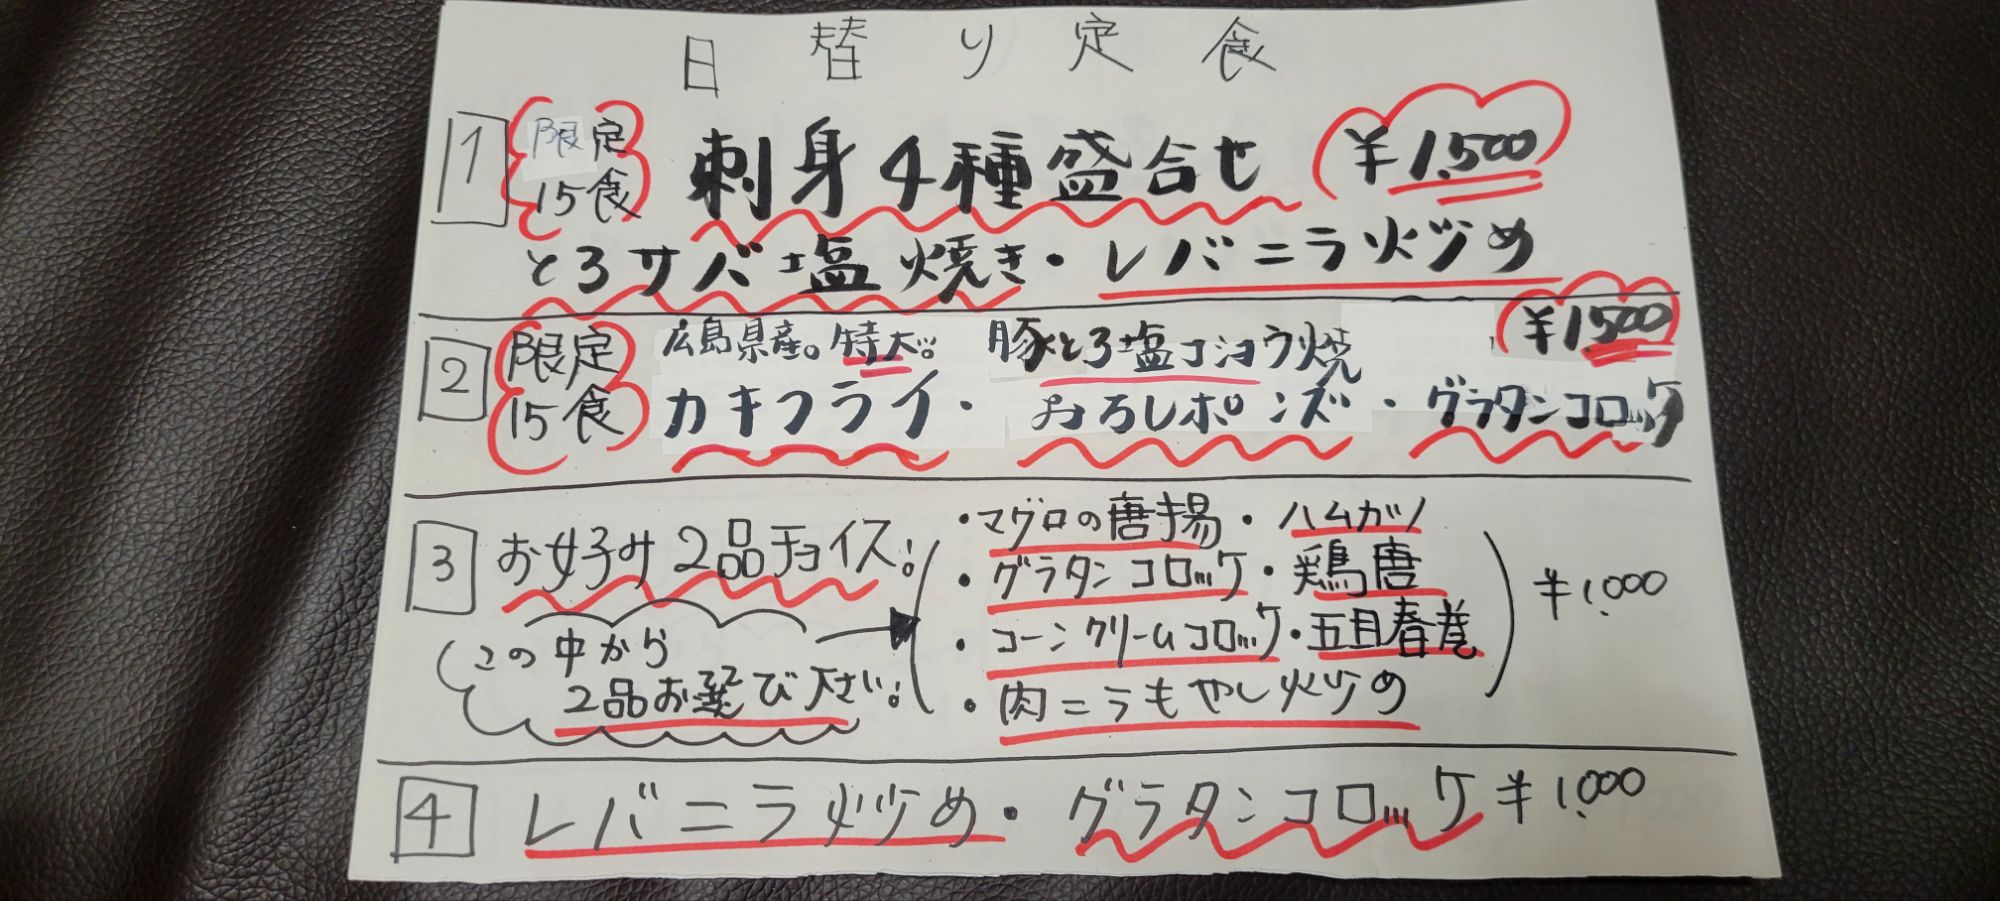 日替り定食
1 限定15食 刺身4種盛合せ ¥1,500
とろサバ塩焼き・レバニラ炒め
2 限定15食 広島県産。特大。 豚とろ塩コショウ焼 ¥1,500
カキフライ・おろしポンズ・グラタンコロッケ
3 お好み2品チョイス!
この中から
2品お選び下さい!
・マグロの唐揚・ハムカツ
・グラタンコロッケ・鶏唐
・コーンクリームコロッケ・五目春巻
・肉ニラもやし炒め
¥1,000
4 レバニラ炒め・グラタンコロッケ ¥1,000